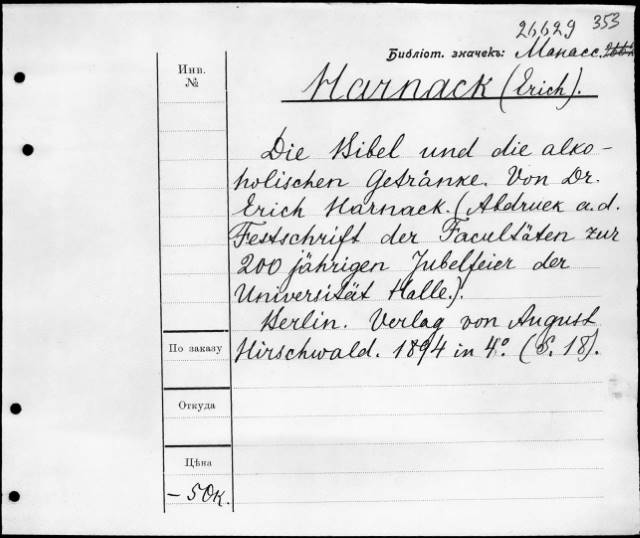 26629 353
Библіот. значекъ: Манасс.
Инв.
№
Harnack (Erich).
Die Bibel und die alko-
holischen Getränke. Von Dr.
Erich Harnack. (Abdruck a. d.
Festschrift der Facultäten zur
200 jährigen Jubelfeier der
Universität Halle.).
Berlin. Verlag von August
Hirschwald. 1894 in 4°. (S. 18).
По заказу
Откуда
Цѣна
– 50к.